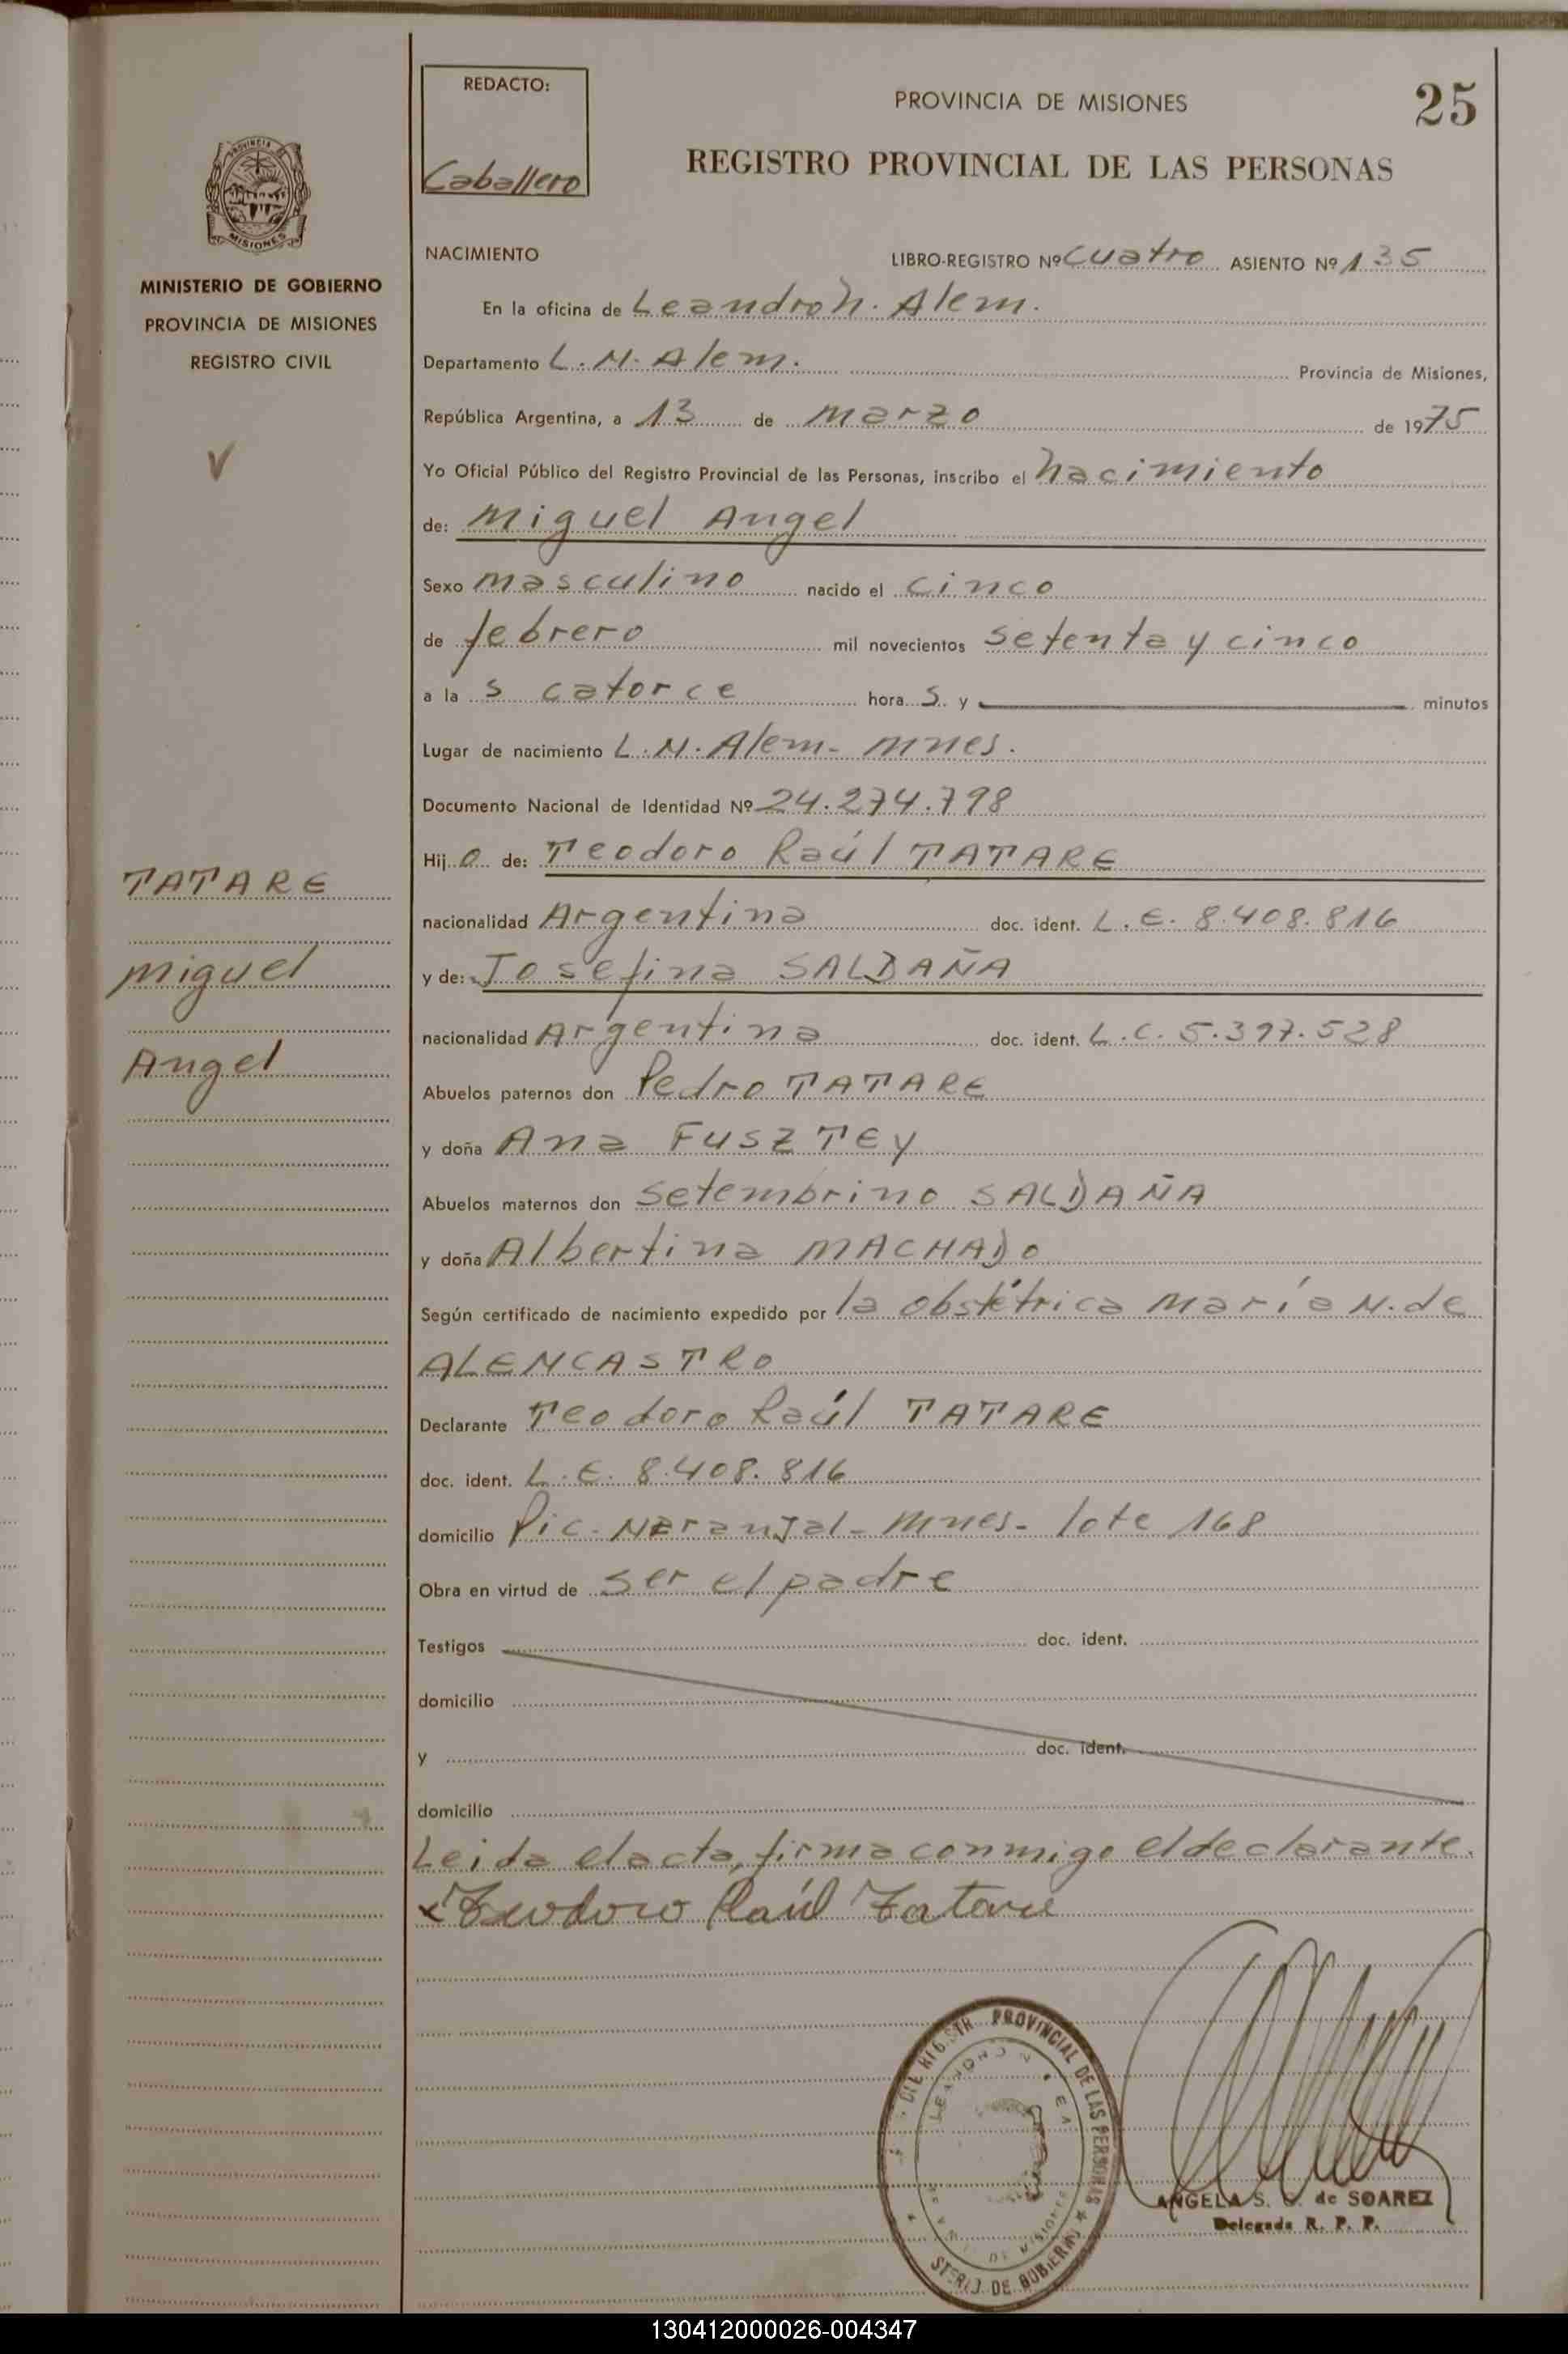 REDACTO:
Caballero
PROVINCIA DE MISIONES
25
REGISTRO PROVINCIAL DE LAS PERSONAS
MISIONES
MINISTERIO DE GOBIERNO
PROVINCIA DE MISIONES
REGISTRO CIVIL
NACIMIENTO
LIBRO-REGISTRO Nº cuatro ASIENTO Nº 135
En la oficina de Leandro N. Alem.
Departamento L. N. Alem. Provincia de Misiones,
República Argentina, a 13 de marzo de 1975
Yo Oficial Público del Registro Provincial de las Personas, inscribo el nacimiento
de: Miguel Angel
Sexo masculino nacido el cinco
de febrero mil novecientos setenta y cinco
a la s catorce hora s y minutos
Lugar de nacimiento L. N. Alem - Mnes.
Documento Nacional de Identidad Nº 24.274.798
Hijo de: Teodoro Raúl TATARE
nacionalidad Argentina doc. ident. L.E. 8.408.816
y de: Josefina SALDAÑA
nacionalidad Argentina doc. ident. L.C. 5.397.528
Abuelos paternos don Pedro TATARE
y doña Ana FUSZTEY
Abuelos maternos don Setembrino SALDAÑA
y doña Albertina MACHADO
Según certificado de nacimiento expedido por la obstétrica María N. de
ALENCASTRO
Declarante Teodoro Raúl TATARE
doc. ident. L.E. 8.408.816
domicilio Pic. Naranjal - Mnes - lote 168
Obra en virtud de ser el padre
Testigos doc. ident.
domicilio
y doc. ident.
domicilio
Leida el acta, firma conmigo el declarante.
Teodoro Raúl Tatare
TATARE
Miguel
Angel
PROVINCIAL DE LAS PERSONAS
DE GOBIERNO
ANGELA S. de SOAREZ
Delegada R. P. P.
130412000026-004347